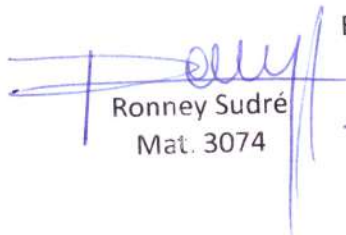 Ronney Sudré
Mat. 3074